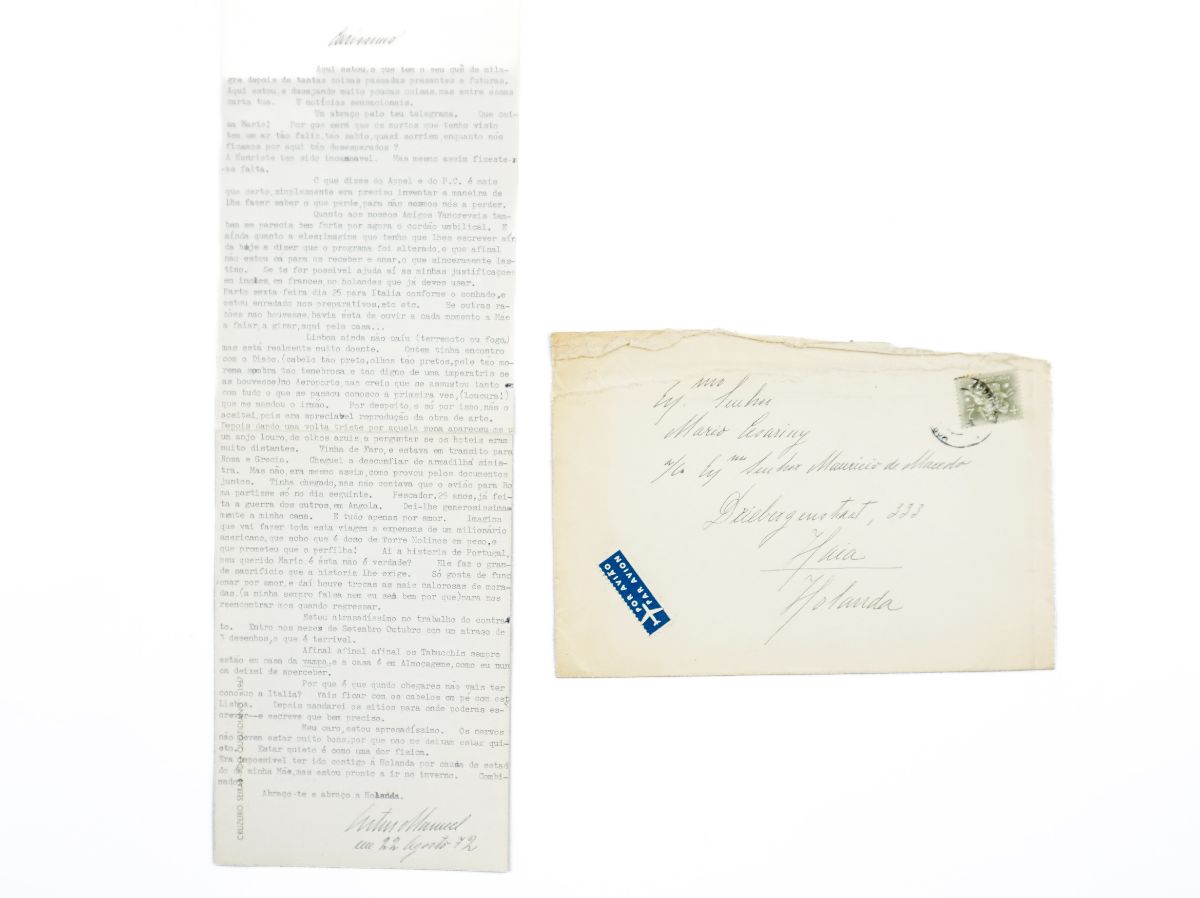 Caríssimo
Aqui estou,o que tem o seu quê de mila-
gre depois de tantas coisas passadas presentes e futuras.
Aqui estou,e desejando muito poucas coisas,mas entre essas
carta tua. E notícias sensacionais.
Um abraço pelo teu telegrama. Que coi-
sa Mario! Por que será que os mortos que tenho visto
tem um ar tão feliz,tao sabio,quasi sorriem,enquanto nós
ficamos por aqui tão desesperados ?
A Henriete tem sido incansavel. Mas mesmo assim fizeste-
-te falta.
O que disse do Appel e do P.C. é mais
que certo,simplesmente era preciso inventar a maneira de
lhe fazer saber o que perde,para não sermos nós a perder.
Quanto aos nossos Amigos Vancreveis tam-
bem me parecia bem forte por agora o cordão umbilical. E
ainda quanto a eles:imagina que tenho que lhes escrever ain
da hoje a dizer que o programa foi alterado,e que afinal
não estou ca para os receber e amar,o que sinceramente las-
timo. Se te for possivel ajuda aí as minhas justificações
em ingles,em frances,no holandes que ja deves usar.
Parto sexta feira dia 25 para Italia conforme o sonhado,e
estou enredado nos preparativos,etc etc. Se outras ra-
zões nao houvesse,havia ésta de ouvir a cada momento a Mãe
a falar,a girar,aqui pela casa...
Lisboa ainda não caíu (terremoto ou fogo)
mas está realmente muito doente. Ontem tinha encontro
com o Diabo.(cabelo tao preto,olhos tao pretos,pele tao mo-
rena sombra tao tenebrosa e tao digno de uma imperatriz se
as houvesse)no Aeroporto,mas creio que se assustou tanto
com tudo o que se passou conosco a primeira vez,(loucura!)
que me mandou o irmão. Por despeito,e só por isso,não o
aceitei,pois era apreciavel reprodução da obra de arte.
Depois dando uma volta triste por aquela zona apareceu-me u
um anjo louro,de olhos azuis,a perguntar se os hoteis eram
muito distantes. Vinha de Faro,e estava em transito para
Roma e Grecia. Cheguei a desconfiar de armadilha sinis-
tra. Mas não,era mesmo assim,como provou pelos documentos
juntos. Tinha chegado,mas não contava que o avião para Ro
ma partisse só no dia seguinte. Pescador,25 anos,já fei-
ta a guerra dos outros,em Angola. Dei-lhe generosissima-
mente a minha casa. E tudo apenas por amor. Imagina
que vai fazer toda esta viagem a expensas de um milionário
americano,que acho que é dono de Torre Molinos em peso,e
que prometeu que o perfilha! Ai a historia de Portugal,
meu querido Mario,é ésta não é verdade? Ele faz o gran-
de sacrificio que a historia lhe exige. Só gosta de func
onar por amor,e daí houve trocas as mais valorosas de mora-
das,(a minha sempre falsa nem eu sei bem por que)para nos
reencontrar mos quando regressar.
Estou atrasadíssimo no trabalho do contra
to. Entro nos mezes de Setembro Outubro com um atraso de
3 desenhos,o que é terrivel.
Afinal afinal afinal os Tabucchis sempre
estão em casa da vampa,e a casa é em Almoçageme,como eu nun
ca deixei de aperceber.
Por que é que qundo chegares não vais ter
conosco a Italia? Vais ficar com os cabelos em pé com est
Lisboa. Depois mandarei os sitios para onde poderas es-
crever--e escreve que bem preciso.
Meu caro,estou apressadíssimo. Os nervos
não devem estar muito bons,por que nao me deixam estar qui-
eto. Estar quieto é como uma dor fisica.
Era impossivel ter ido contigo á Holanda por causa do estad
do da minha Mãe,mas estou pronto a ir no inverno. Combi-
nado?
Abraço-te e abraço a Holanda.
Artur Manuel
em 22 Agosto 72
CRUZEIRO SEIXAS
Exmo Senhor
Mario Cesariny
a/c Exmo Senhor Mauricio de Macedo
Driebergenstraat, 333
Haia
Holanda
POR AVIÃO
PAR AVION